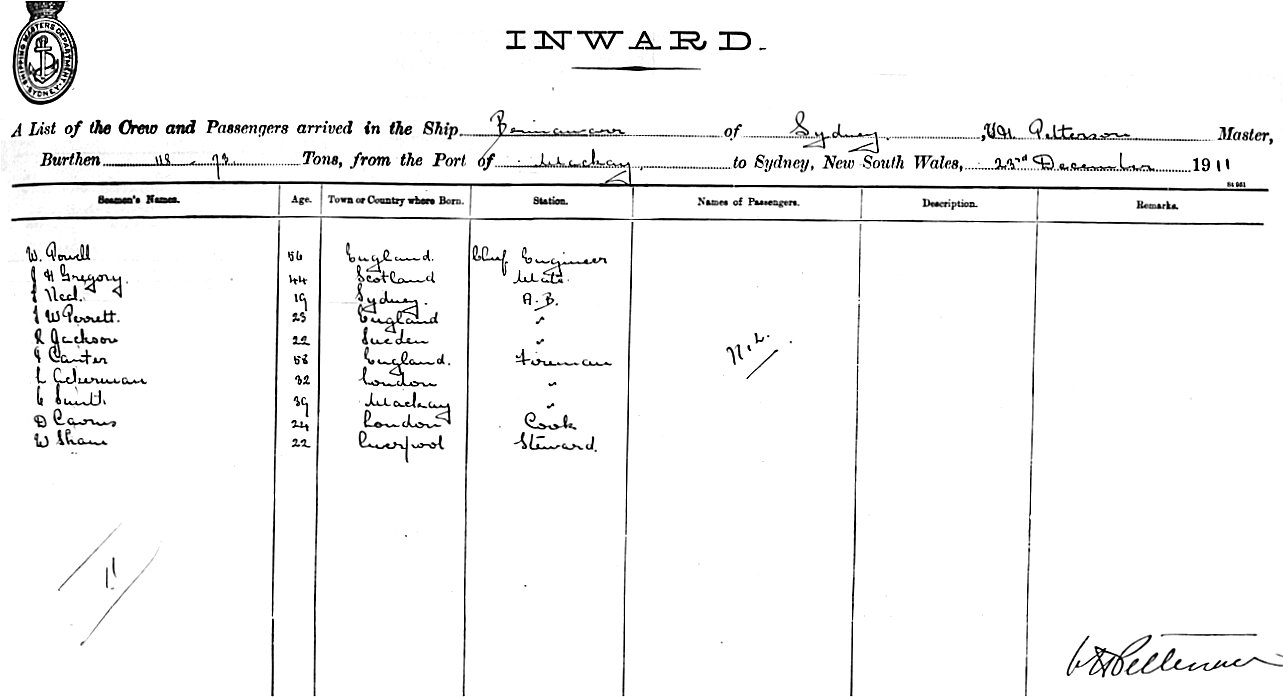 SHIPPING MASTERS DEPARTMENT SYDNEY
INWARD.
A List of the Crew and Passengers arrived in the Ship of Sydney, Petterson Master,
Burthen 118 - 73 Tons, from the Port of Mackay, to Sydney, New South Wales, 23rd December 1911
Seamen's Names. Age. Town or Country where Born. Station. Names of Passengers. Description. Remarks.
W. Powell England. Chief Engineer
J H Gregory. 44 Scotland Mate.
J Neal. 19 Sydney. A.B.
J W Perrett. 23 England "
R Jackson 22 Sweden "
Canter 58 England. Fireman
L Ackerman 32 London "
Smith. 39 Mackay "
D Cairns 24 London Cook
W Shaw 22 Liverpool Steward.
N.L.
11